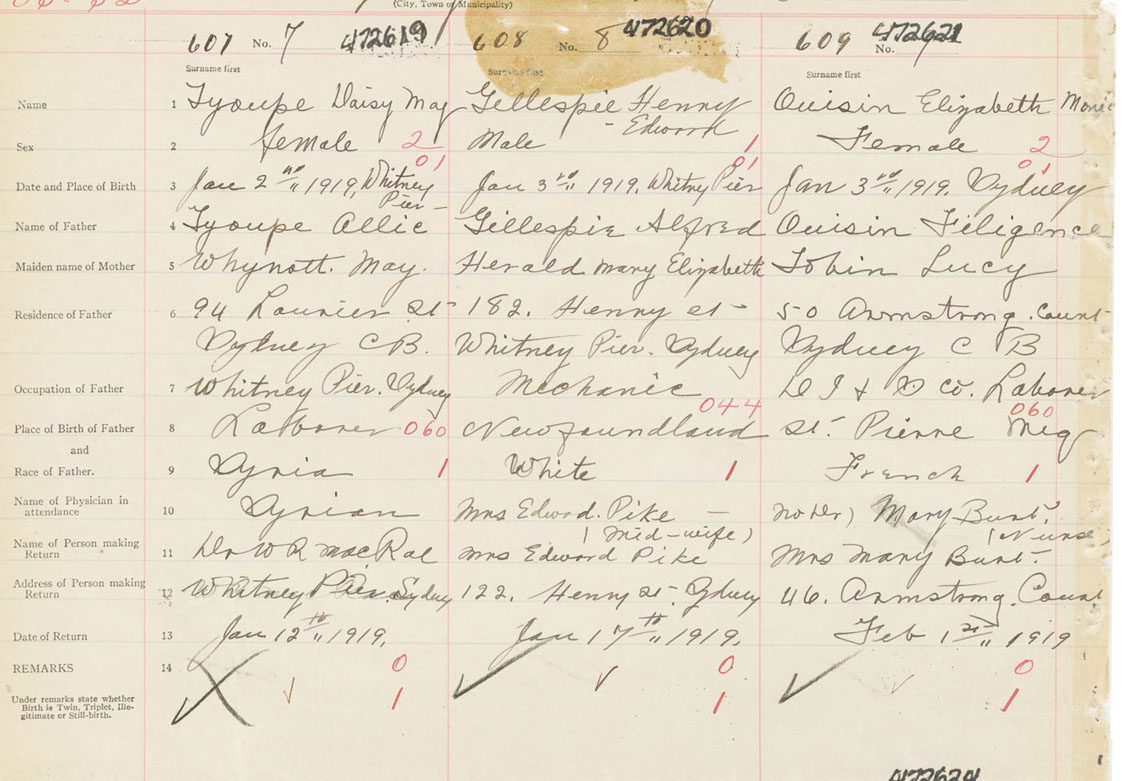 (City, Town or Municipality)
607 No. 7 472619 608 No. 8 472620 609 No. 472621
Surname first Surname first Surname first
Name 1 Tyoupe Daisy May Gillespie Henry Edward Ouisin Elizabeth
Sex 2 female 2 Male 1 Female 2
01 01 01
Date and Place of Birth 3 Jan 2nd 1919, Whitney Pier Jan 3rd 1919, Whitney Pier Jan 3rd 1919. Sydney
Name of Father 4 Tyoupe Allie Gillespie Alfred Ouisin Filigence
Maiden name of Mother 5 Whynott. May. Herald Mary Elizabeth Tobin Lucy
Residence of Father 6 94 Laurier St 182. Henry st 50 Armstrong. Court
Sydney C B. Whitney Pier. Sydney Sydney C B
Occupation of Father 7 Whitney Pier. Sydney Mechanic D I & S Co. Laborer
044 060
Place of Birth of Father 8 Laborer 060 Newfoundland St. Pierre Miq
and
Race of Father. 9 Syria 1 White 1 French 1
Name of Physician in attendance 10 Syrian Mrs Edward. Pike (Mid-wife) no Dr) Mary Burt. (Nurse)
Name of Person making Return 11 Dr W R MacRae Mrs Edward Pike Mrs Mary Burt.
Address of Person making Return 12 Whitney Pier. Sydney 122. Henry st. Sydney 46. Armstrong. Court
Date of Return 13 Jan 12th 1919. Jan 17th 1919. Feb 1st 1919
REMARKS 14 0 0 0
Under remarks state whether Birth is Twin, Triplet, Ille-
gitimate or Still-birth. 1 1 1